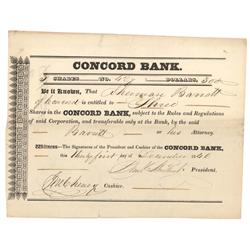 CONCORD BANK.
3 SHARES NO. DOLLARS, 300
Be it Known, That Sherman Barrett
of Concord is entitled to Three
Shares in the CONCORD BANK, subject to the Rules and Regulations
of said Corporation, and transferable only at the Bank, by the said
Barrett or his Attorney.
Witness—The Signatures of the President and Cashier of the CONCORD BANK,
this thirty first day of December 18
President.
Cashier.